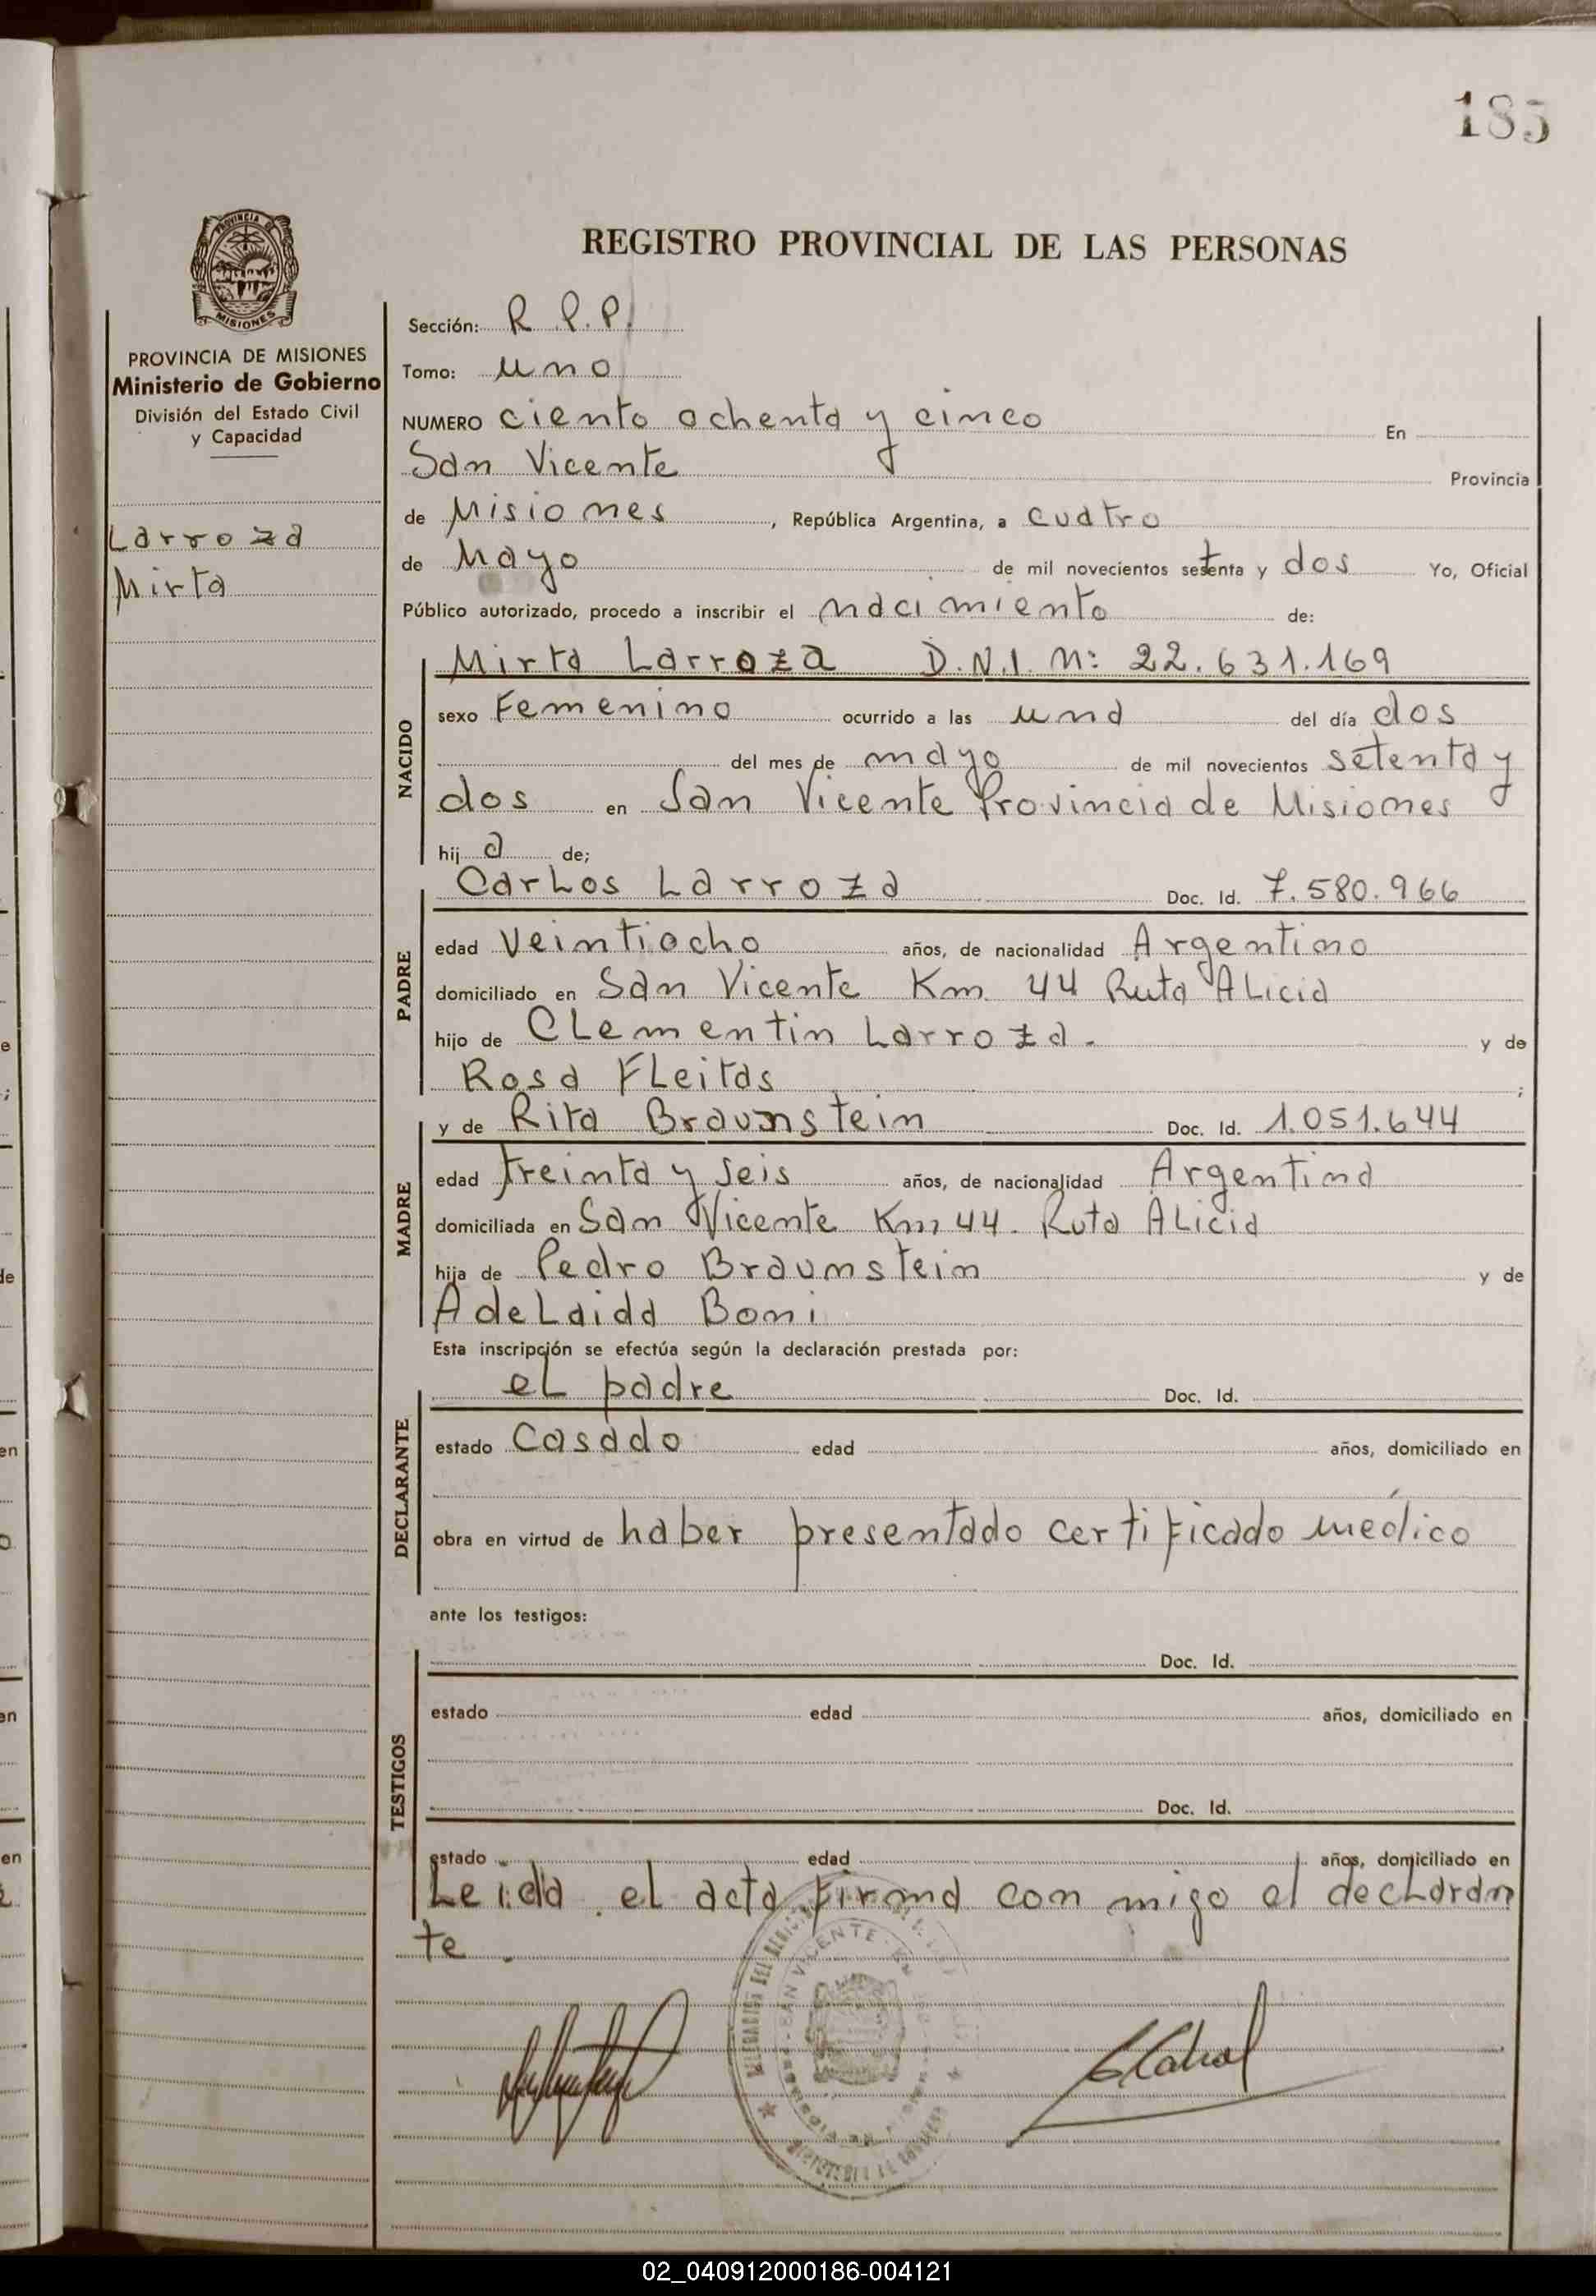 185
REGISTRO PROVINCIAL DE LAS PERSONAS
PROVINCIA DE MISIONES
Ministerio de Gobierno
División del Estado Civil
y Capacidad
Larroza
Mirta
Sección: R.P.P.
Tomo: uno
NUMERO ciento ochenta y cinco En
San Vicente Provincia
de Misiones, República Argentina, a cuatro
de Mayo de mil novecientos setenta y dos Yo, Oficial
Público autorizado, procedo a inscribir el nacimiento de:
NACIDO
Mirta Larroza D.N.I. N: 22.631.169
sexo Femenino ocurrido a las una del día dos
del mes de mayo de mil novecientos setenta y
dos en San Vicente Provincia de Misiones
hij a de;
PADRE
Carlos Larroza Doc. Id. 7.580.966
edad Veintiocho años, de nacionalidad Argentino
domiciliado en San Vicente Km 44 Ruta Alicia
hijo de Clementin Larroza. y de
Rosa Fleitas ;
MADRE
y de Rita Braunstein Doc. Id. 1.051.644
edad treinta y seis años, de nacionalidad Argentina
domiciliada en San Vicente Km 44. Ruta Alicia
hija de Pedro Braunstein y de
Adelaida Boni
Esta inscripción se efectúa según la declaración prestada por:
DECLARANTE
el padre Doc. Id.
estado Casado edad años, domiciliado en
obra en virtud de haber presentado certificado médico
ante los testigos:
TESTIGOS
Doc. Id.
estado edad años, domiciliado en
Doc. Id.
estado edad años, domiciliado en
Leida el acta firmna con migo el declaran
te.
SAN VICENTE
02_040912000186-004121